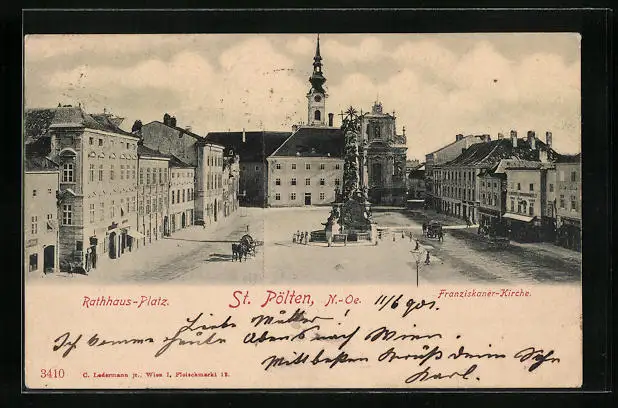 Rathhaus-Platz.
St. Pölten, N.-Oe.
11/6 901.
Franziskaner-Kirche.
Liebe Mutter!
Ich komme heute Abends nach Wien.
Mit besten Grüßen dein Sohn
Karl.
3410
C. Ledermann jr., Wien I, Fleischmarkt 12.